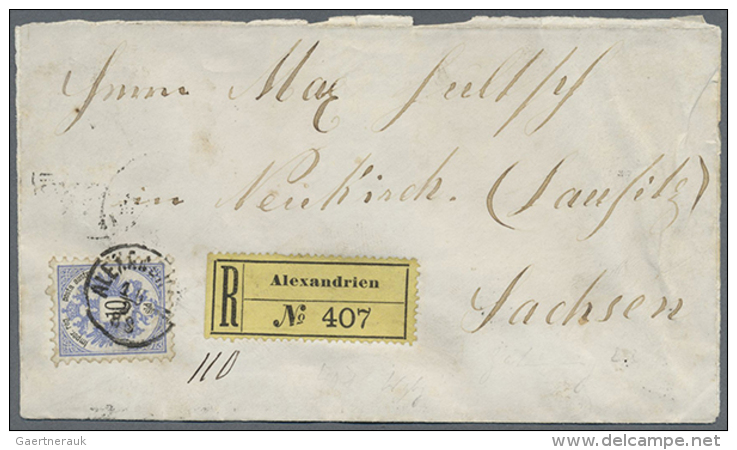 Herrn Max
in Neukirch. (Lausitz)
Sachsen
R
Alexandrien
№ 407
10
110
Gaertnerauk
delcampe.net